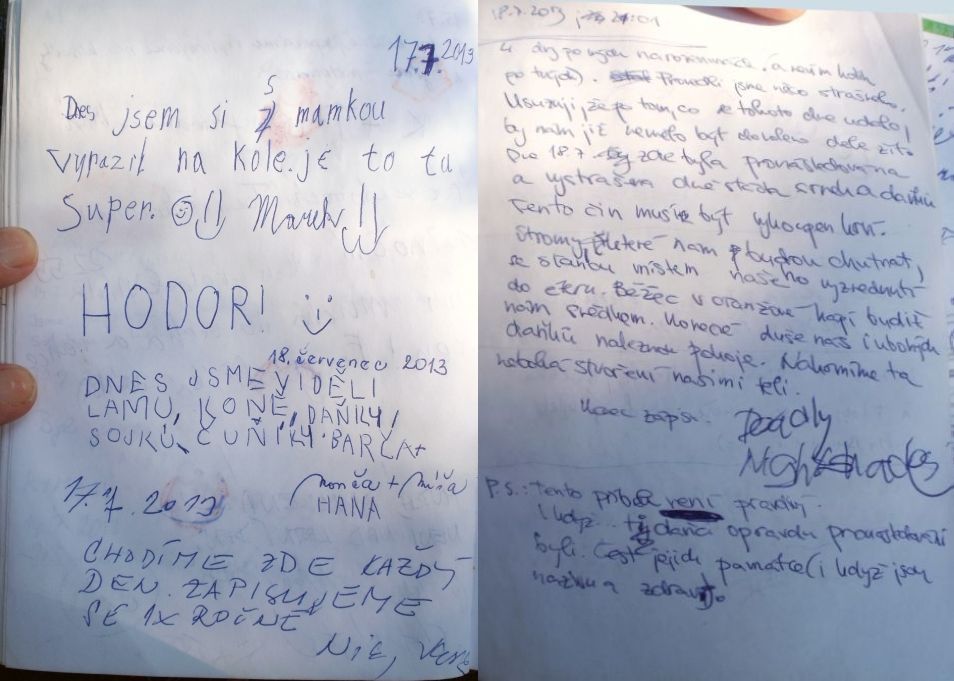 17.7.2013
Dnes jsem si s mamkou
vyrazil na kole. je to tu
Super. Marek
HODOR! :)
18. červenec 2013
DNES JSME VIDĚLI
LAMU, KONĚ, DAŇKY,
SOJKU, ČUŇÍKY. BARČA +
Monča + Míša
HANA
17.7.2013
CHODÍME ZDE KAŽDÝ
DEN. ZAPISUJEME
SE 1X ROČNĚ
18.7.2013 21:01
4 dny po mých narozeninách. a nevím kolik
po tvých). Provedli jsme něco strašného.
Usuzuji, že po tom, co se tohoto dne událo,
by nám již nemělo být dovoleno déle žíti.
Dne 18.7. zde byla pronásledována
a vystrašena dvě stáda srnek a daňků
Tento čin musí být vykoupen krví.
Stromy, které nám budou chutnat,
se stanou místem našeho vyzrednutí
do éteru. Běžec v oranžové kápi budiž
nám svědkem. Konečně duše naše i ubohých
daňků naleznou pokoje. Nakrmíme ta
nebohá stvoření našimi těly.
Konec zápisu. Deadly
Nightshades
P.S.: Tento příběh není pravdivý.
I když... ti daňci opravdu pronásledováni
byli. Čest jejich památce (i když jsou
naživu a zdraví).